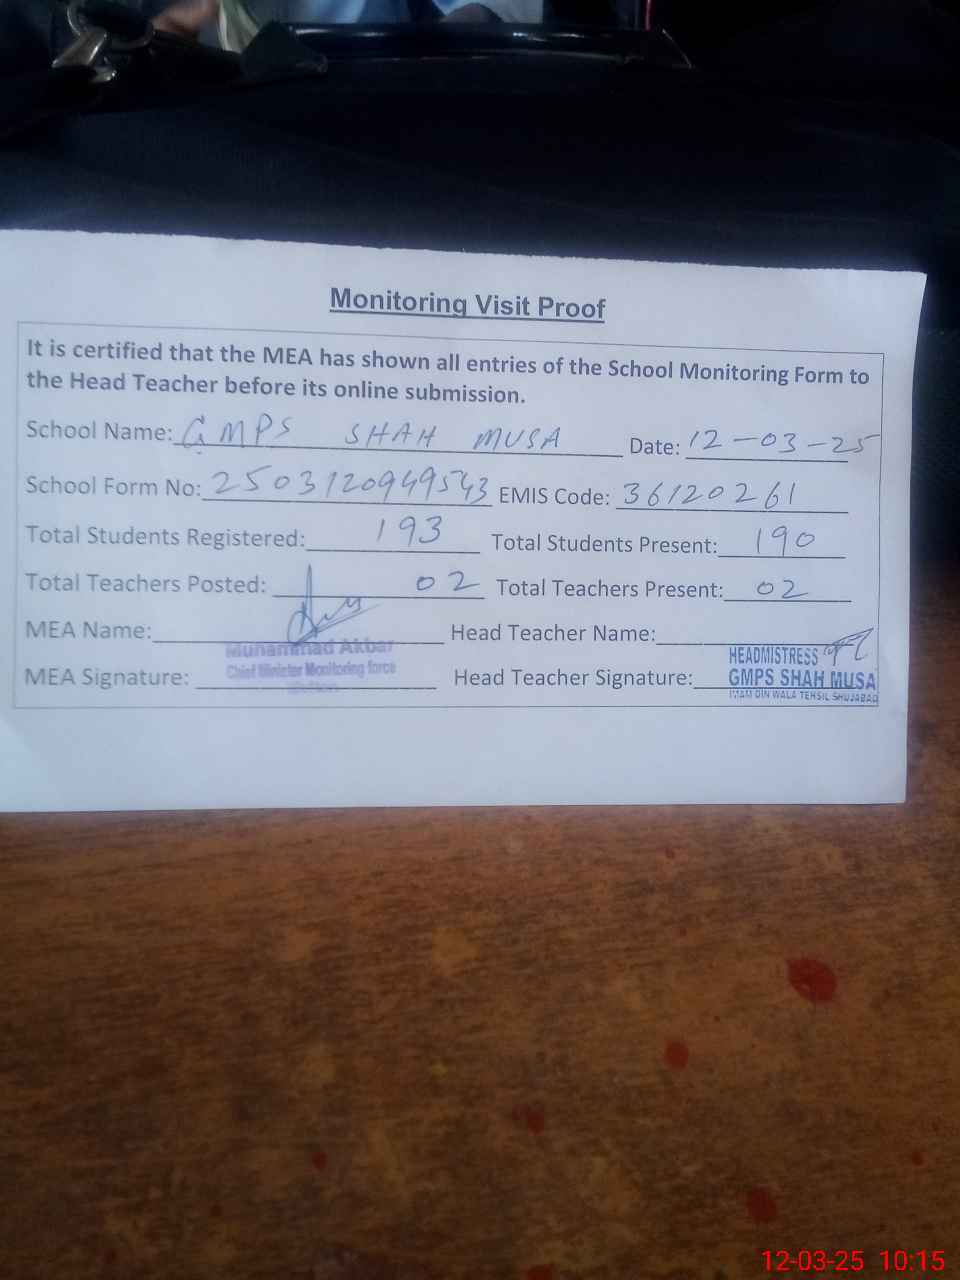 Monitoring Visit Proof
It is certified that the MEA has shown all entries of the School Monitoring Form to
the Head Teacher before its online submission.
School Name: GMPS SHAH MUSA Date: 12-03-25
School Form No: 2503120949543 EMIS Code: 36120261
Total Students Registered: 193 Total Students Present: 190
Total Teachers Posted: 02 Total Teachers Present: 02
MEA Name: Head Teacher Name:
Muhammad Akbar
Chief Minister Monitoring force
MEA Signature: Head Teacher Signature:
HEADMISTRESS
GMPS SHAH MUSA
IMAM DIN WALA TEHSIL SHUJABAD
12-03-25 10:15